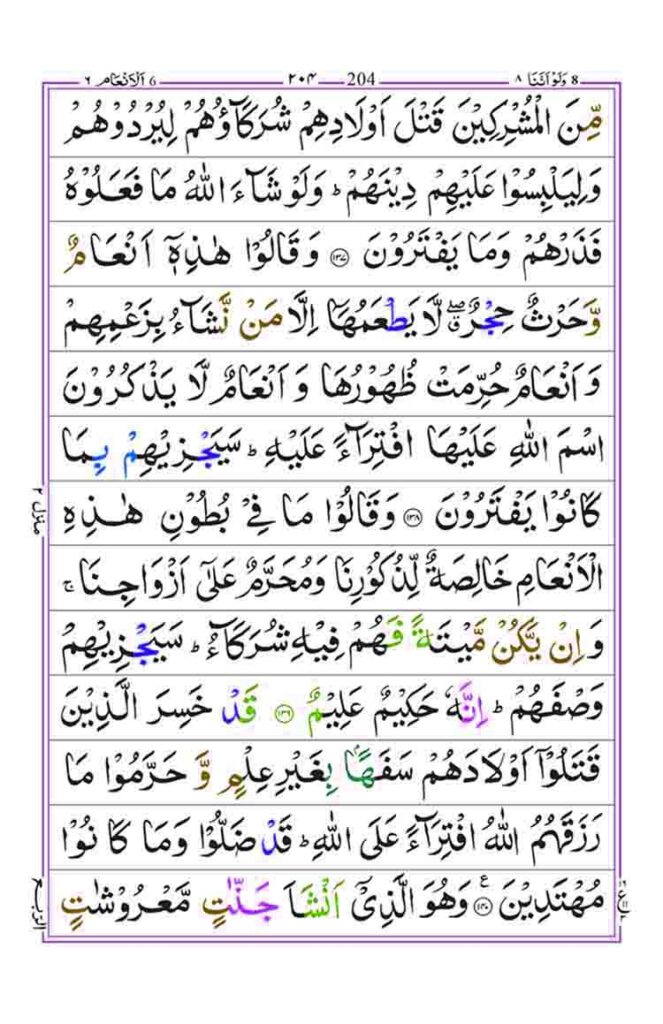 6 اَلْاَنْعَام ٦ 204 ٢٠٤ 8 وَلَوْ اَنَّنَا ٨
مِّنَ الْمُشْرِكِيْنَ قَتْلَ اَوْلَادِهِمْ شُرَكَآؤُهُمْ لِيُرْدُوْهُمْ
وَلِيَلْبِسُوْا عَلَيْهِمْ دِيْنَهُمْ ؕ وَلَوْ شَآءَ اللّٰهُ مَا فَعَلُوْهُ
فَذَرْهُمْ وَمَا يَفْتَرُوْنَ ﴿۱۳۷﴾ وَقَالُوْا هٰذِهٖۤ اَنْعَامٌ
وَّحَرْثٌ حِجْرٌ ۖۗ لَّا يَطْعَمُهَاۤ اِلَّا مَنْ نَّشَآءُ بِزَعْمِهِمْ
وَاَنْعَامٌ حُرِّمَتْ ظُهُوْرُهَا وَاَنْعَامٌ لَّا يَذْكُرُوْنَ
اسْمَ اللّٰهِ عَلَيْهَا افْتِرَآءً عَلَيْهِ ؕ سَيَجْزِيْهِمْ بِمَا
كَانُوْا يَفْتَرُوْنَ ﴿۱۳۸﴾ وَقَالُوْا مَا فِيْ بُطُوْنِ هٰذِهِ
الْاَنْعَامِ خَالِصَةٌ لِّذُكُوْرِنَا وَمُحَرَّمٌ عَلٰٓى اَزْوَاجِنَا ۚ
وَاِنْ يَّكُنْ مَّيْتَةً فَهُمْ فِيْهِ شُرَكَآءُ ؕ سَيَجْزِيْهِمْ
وَصْفَهُمْ ؕ اِنَّهٗ حَكِيْمٌ عَلِيْمٌ ﴿۱۳۹﴾ قَدْ خَسِرَ الَّذِيْنَ
قَتَلُوْۤا اَوْلَادَهُمْ سَفَهًۢا بِغَيْرِ عِلْمٍ وَّحَرَّمُوْا مَا
رَزَقَهُمُ اللّٰهُ افْتِرَآءً عَلَى اللّٰهِ ؕ قَدْ ضَلُّوْا وَمَا كَانُوْا
مُهْتَدِيْنَ ﴿۱۴۰﴾ ع وَهُوَ الَّذِيْۤ اَنْشَاَ جَنّٰتٍ مَّعْرُوْشٰتٍ
منزل ٢
الرّبع